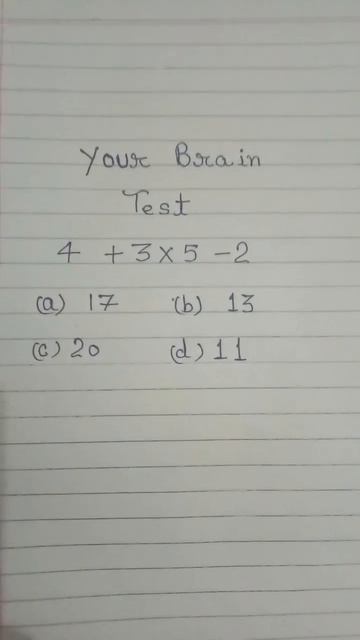 Your Brain
Test
4 + 3 × 5 - 2
(a) 17 (b) 13
(c) 20 (d) 11